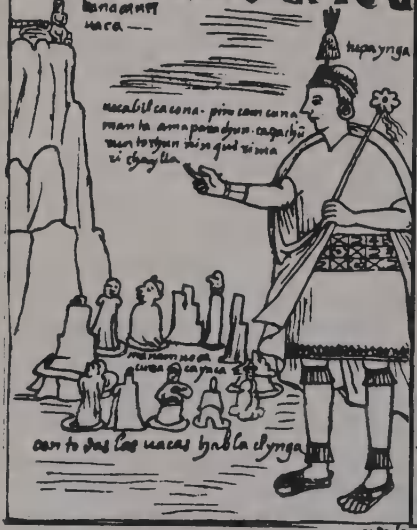 uanacauri
uaca
tupaynga
uacabilcacona - pim camcuna
manta ama parachun - cazachũ
runtochun ninqui rima
ri chaylla
manam noca
cuna
con todas las uacas habla elynga